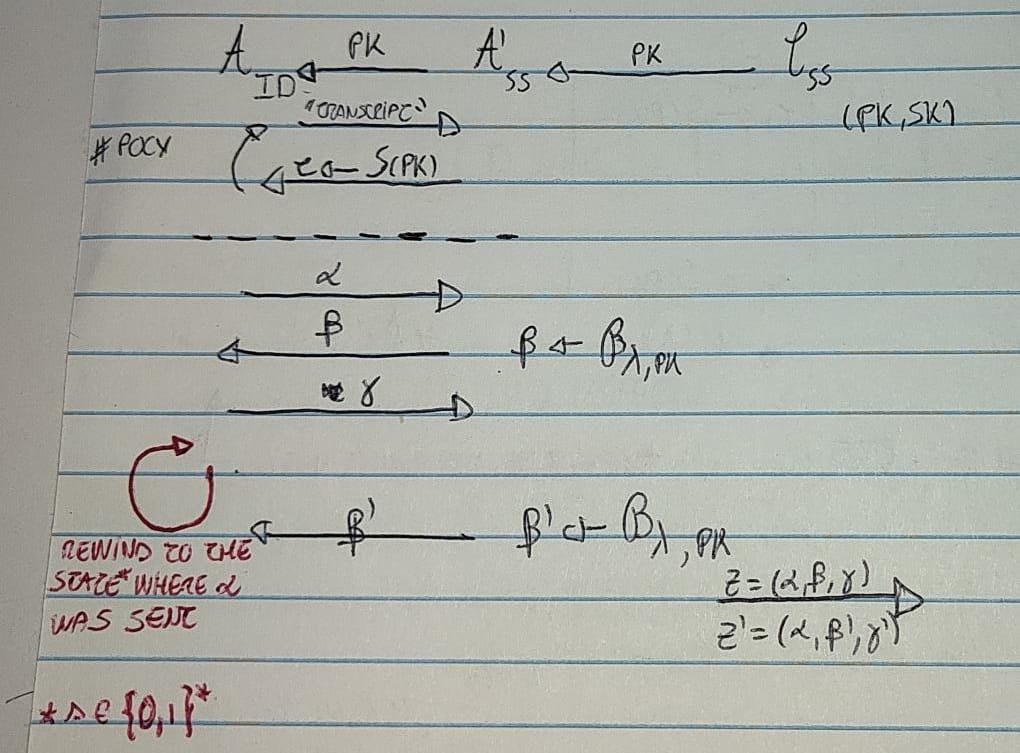 A_ID PK A'_SS PK C_SS
"TRANSCRIPT" (PK, SK)
# POLY
τ ← S(PK)
α
β β ← B_λ,PK
γ
β' β' ← B_λ,PK
REWIND TO THE
STATE* WHERE α
WAS SENT
Z = (α, β, γ)
Z' = (α, β', γ')
* s ∈ {0,1}*